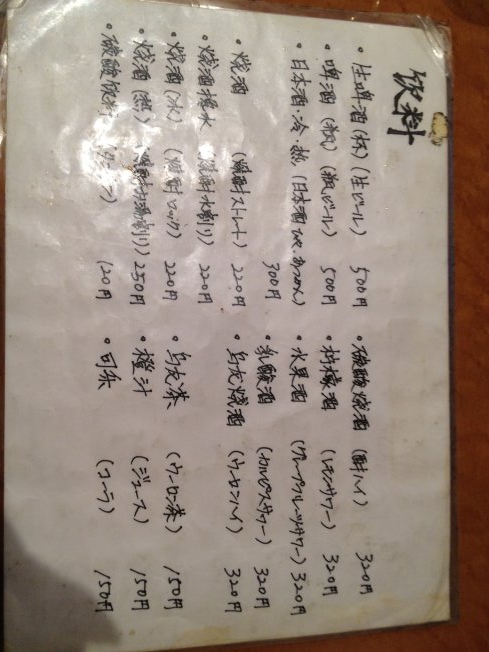 饮料
・生啤酒(杯)(生ビール) 500円
・啤酒(瓶)(瓶ビール) 500円
・日本酒・冷・热(日本酒ひや、あつかん) 300円
・烧酒 (焼酎ストレート) 220円
・烧酒搀水 (焼酎水割り) 220円
・烧酒(冰) (焼酎ロック) 220円
・烧酒(热) (焼酎お湯割り) 250円
・碳酸饮料 120円
・碳酸烧酒 (酎ハイ) 320円
・柠檬酒 (レモンサワー) 320円
・水果酒 (グレープフルーツサワー) 320円
・乳酸酒 (カルピスサワー) 320円
・乌龙烧酒 (ウーロンハイ) 320円
・乌龙茶 (ウーロン茶) 150円
・橙汁 (ジュース) 150円
・可乐 (コーラ) 150円